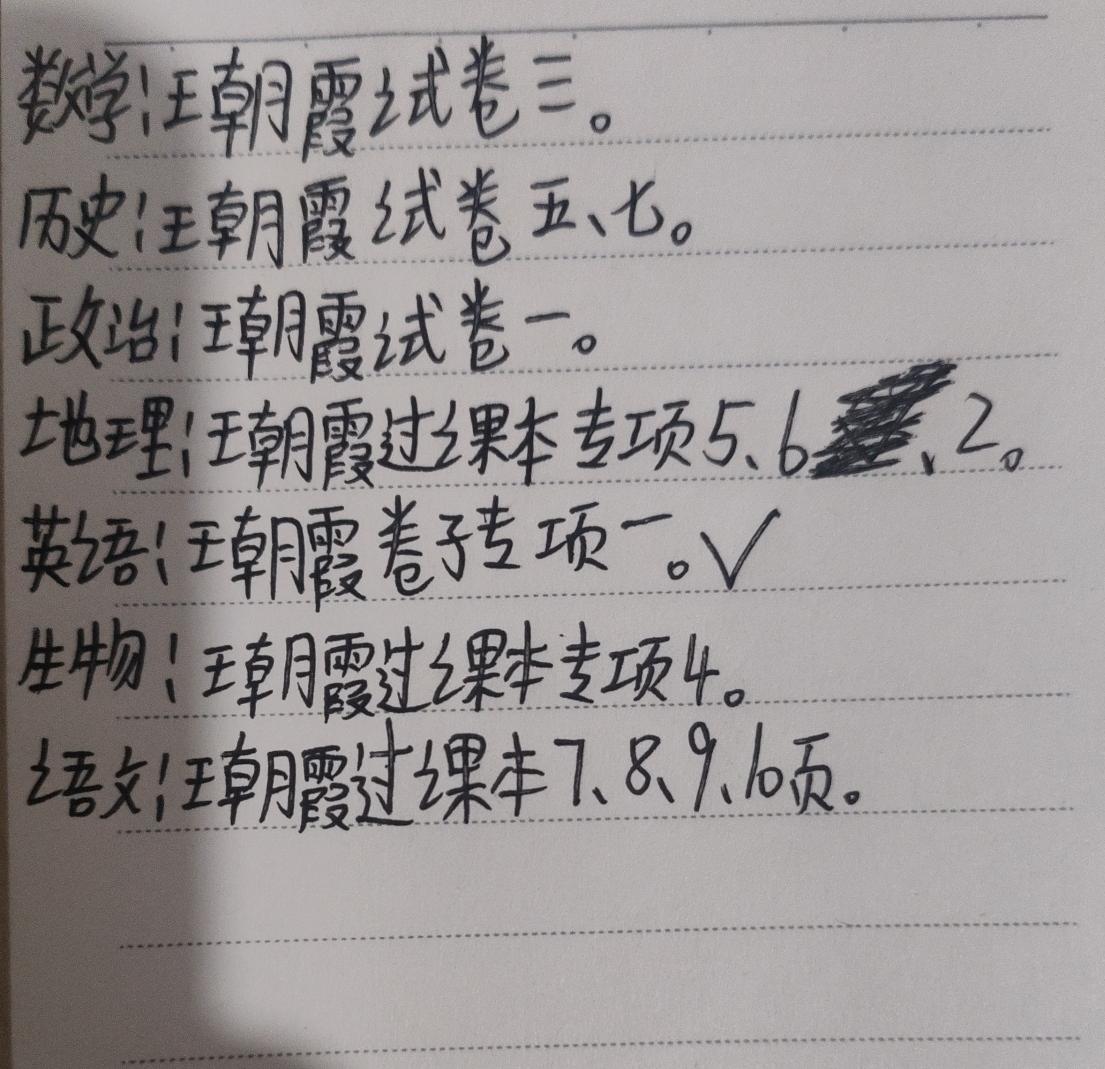 数学:王朝霞试卷三。
历史:王朝霞试卷五、七。
政治:王朝霞试卷一。
地理:王朝霞过课本专项5、6、2。
英语:王朝霞卷子专项一。✓
生物:王朝霞过课本专项4。
语文:王朝霞过课本7、8、9、10页。